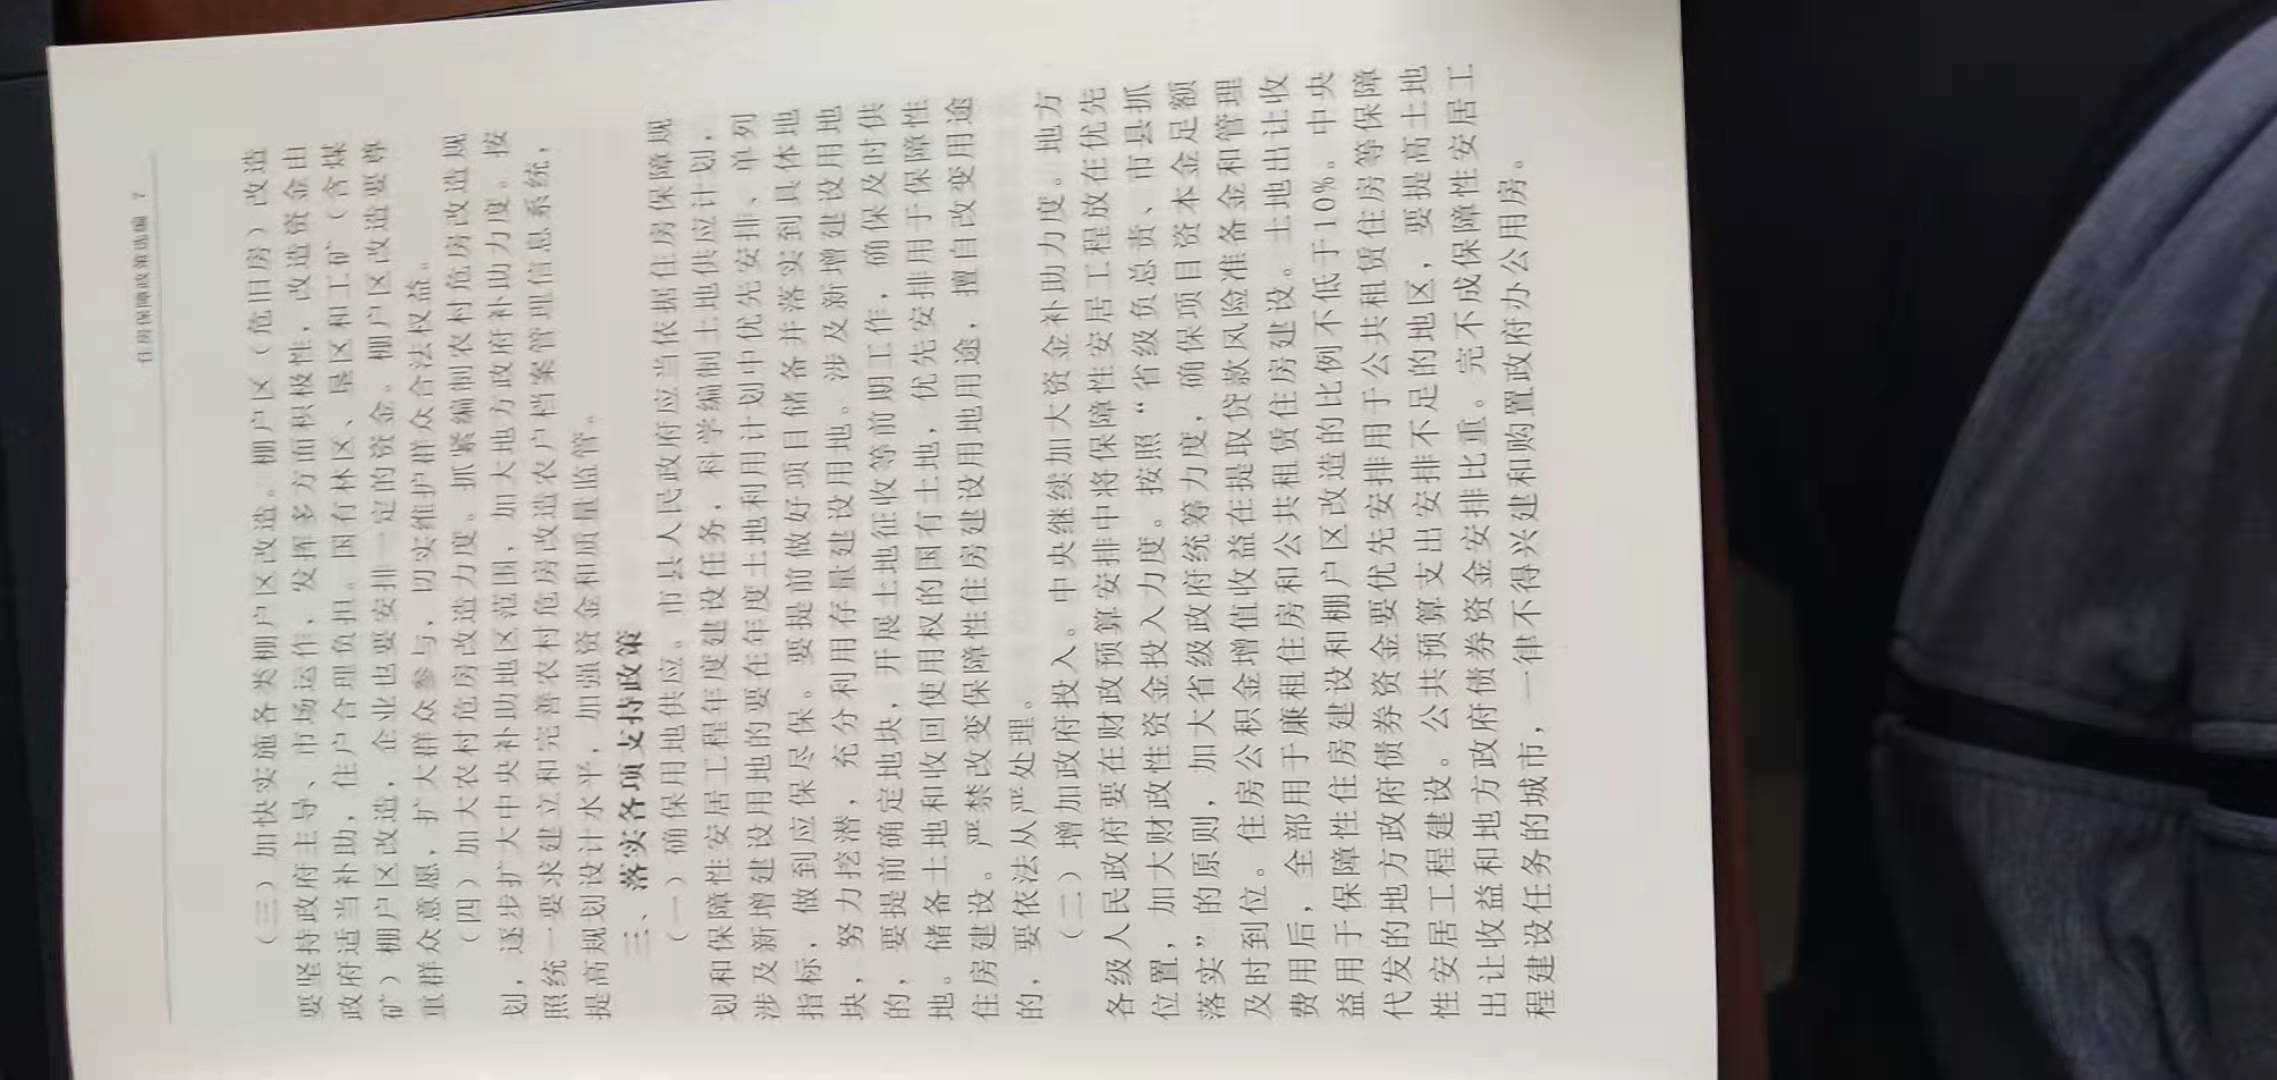 住房保障政策选编 7
（三）加快实施各类棚户区改造。棚户区（危旧房）改造
要坚持政府主导、市场运作，发挥多方面积极性，改造资金由
政府适当补助，住户合理负担。国有林区、垦区和工矿（含煤
矿）棚户区改造，企业也要安排一定的资金。棚户区改造要尊
重群众意愿，扩大群众参与，切实维护群众合法权益。
（四）加大农村危房改造力度。抓紧编制农村危房改造规
划，逐步扩大中央补助地区范围，加大地方政府补助力度。按
照统一要求建立和完善农村危房改造农户档案管理信息系统，
提高规划设计水平，加强资金和质量监管。
三、落实各项支持政策
（一）确保用地供应。市县人民政府应当依据住房保障规
划和保障性安居工程年度建设任务，科学编制土地供应计划，
涉及新增建设用地的要在年度土地利用计划中优先安排、单列
指标，做到应保尽保。要提前做好项目储备并落实到具体地
块，努力挖潜，充分利用存量建设用地。涉及新增建设用地
的，要提前确定地块，开展土地征收等前期工作，确保及时供
地。储备土地和收回使用权的国有土地，优先安排用于保障性
住房建设。严禁改变保障性住房建设用地用途，擅自改变用途
的，要依法从严处理。
（二）增加政府投入。中央继续加大资金补助力度。地方
各级人民政府要在财政预算安排中将保障性安居工程放在优先
位置，加大财政性资金投入力度。按照“省级负总责、市县抓
落实”的原则，加大省级政府统筹力度，确保项目资本金足额
及时到位。住房公积金增值收益在提取贷款风险准备金和管理
费用后，全部用于廉租住房和公共租赁住房建设。土地出让收
益用于保障性住房建设和棚户区改造的比例不低于10%。中央
代发的地方政府债券资金要优先安排用于公共租赁住房等保障
性安居工程建设。公共预算支出安排不足的地区，要提高土地
出让收益和地方政府债券资金安排比重。完不成保障性安居工
程建设任务的城市，一律不得兴建和购置政府办公用房。